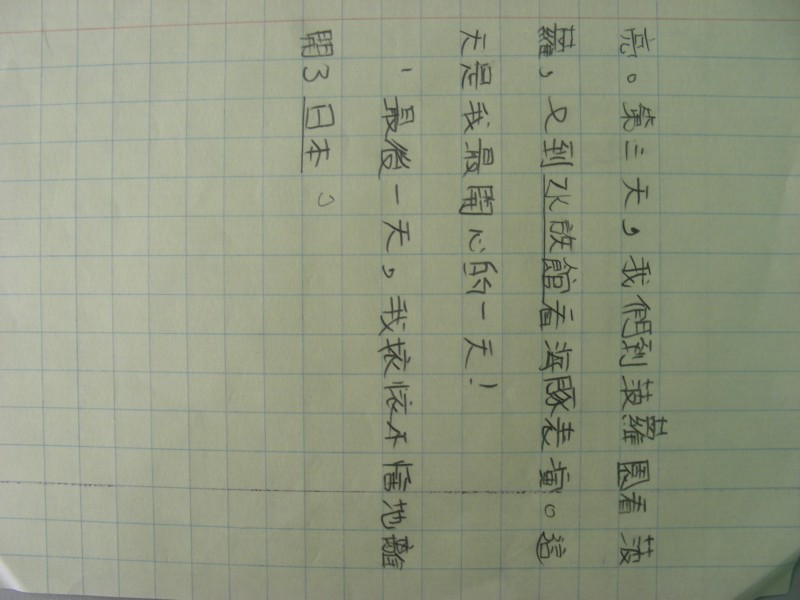 亮。第三天，我們到菠蘿園看菠
蘿，又到水族館看海豚表演。這
天是我最開心的一天！
最後一天，我依依不捨地離
開了日本。